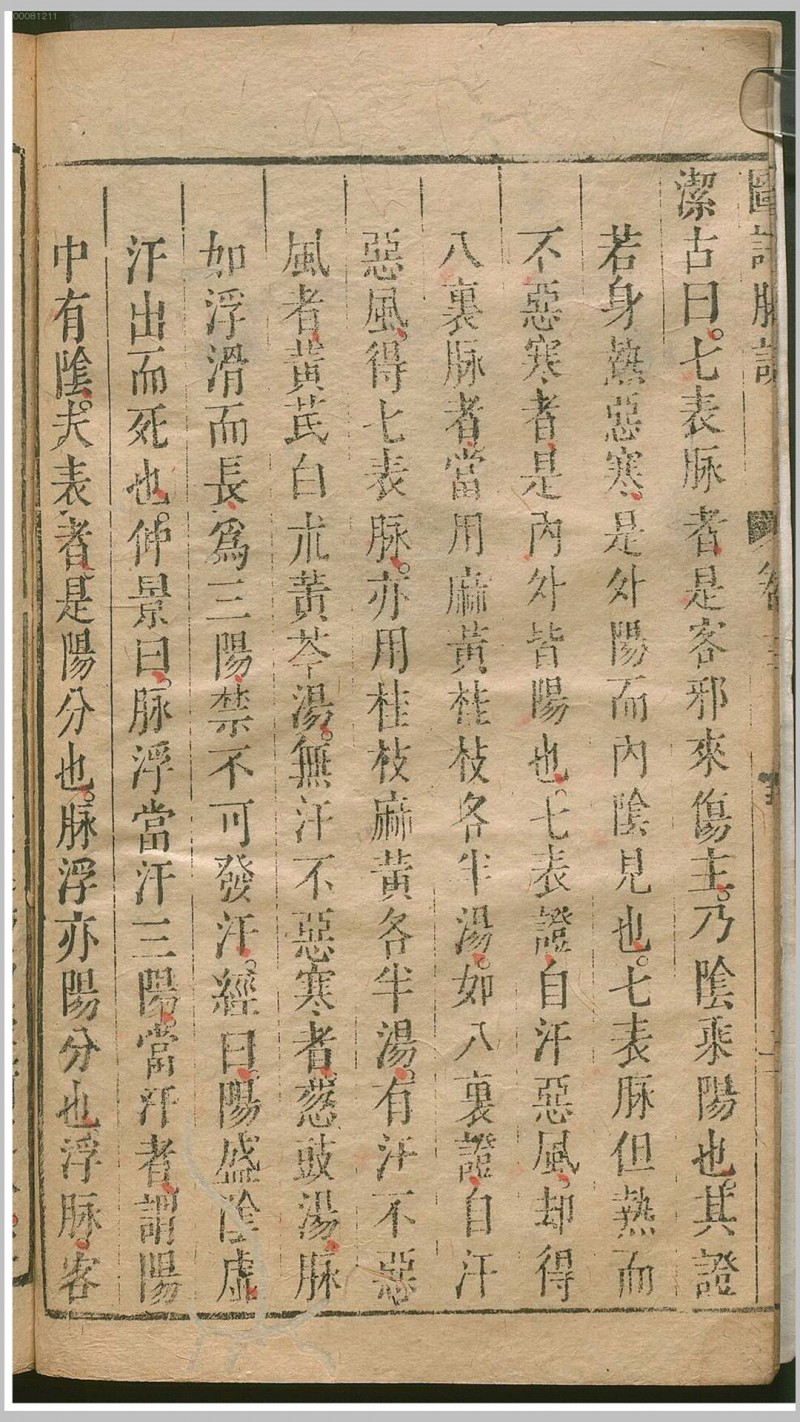 潔古曰七表脉者是客邪來傷主乃陰乘陽也其證
若身熱惡寒是外陽而內陰見也七表脉但熱而
不惡寒者是內外皆陽也七表證自汗惡風却得
八裏脉者當用麻黃桂枝各半湯如八裏證自汗
惡風得七表脉亦用桂枝麻黃各半湯有汗不惡
風者黃芪白朮黃芩湯無汗不惡寒者葱豉湯脉
如浮滑而長爲三陽禁不可發汗經曰陽盛陰虛
汗出而死也仲景曰脉浮當汗三陽當汗者謂陽
中有陰夫表者是陽分也脉浮亦陽分也浮脉客